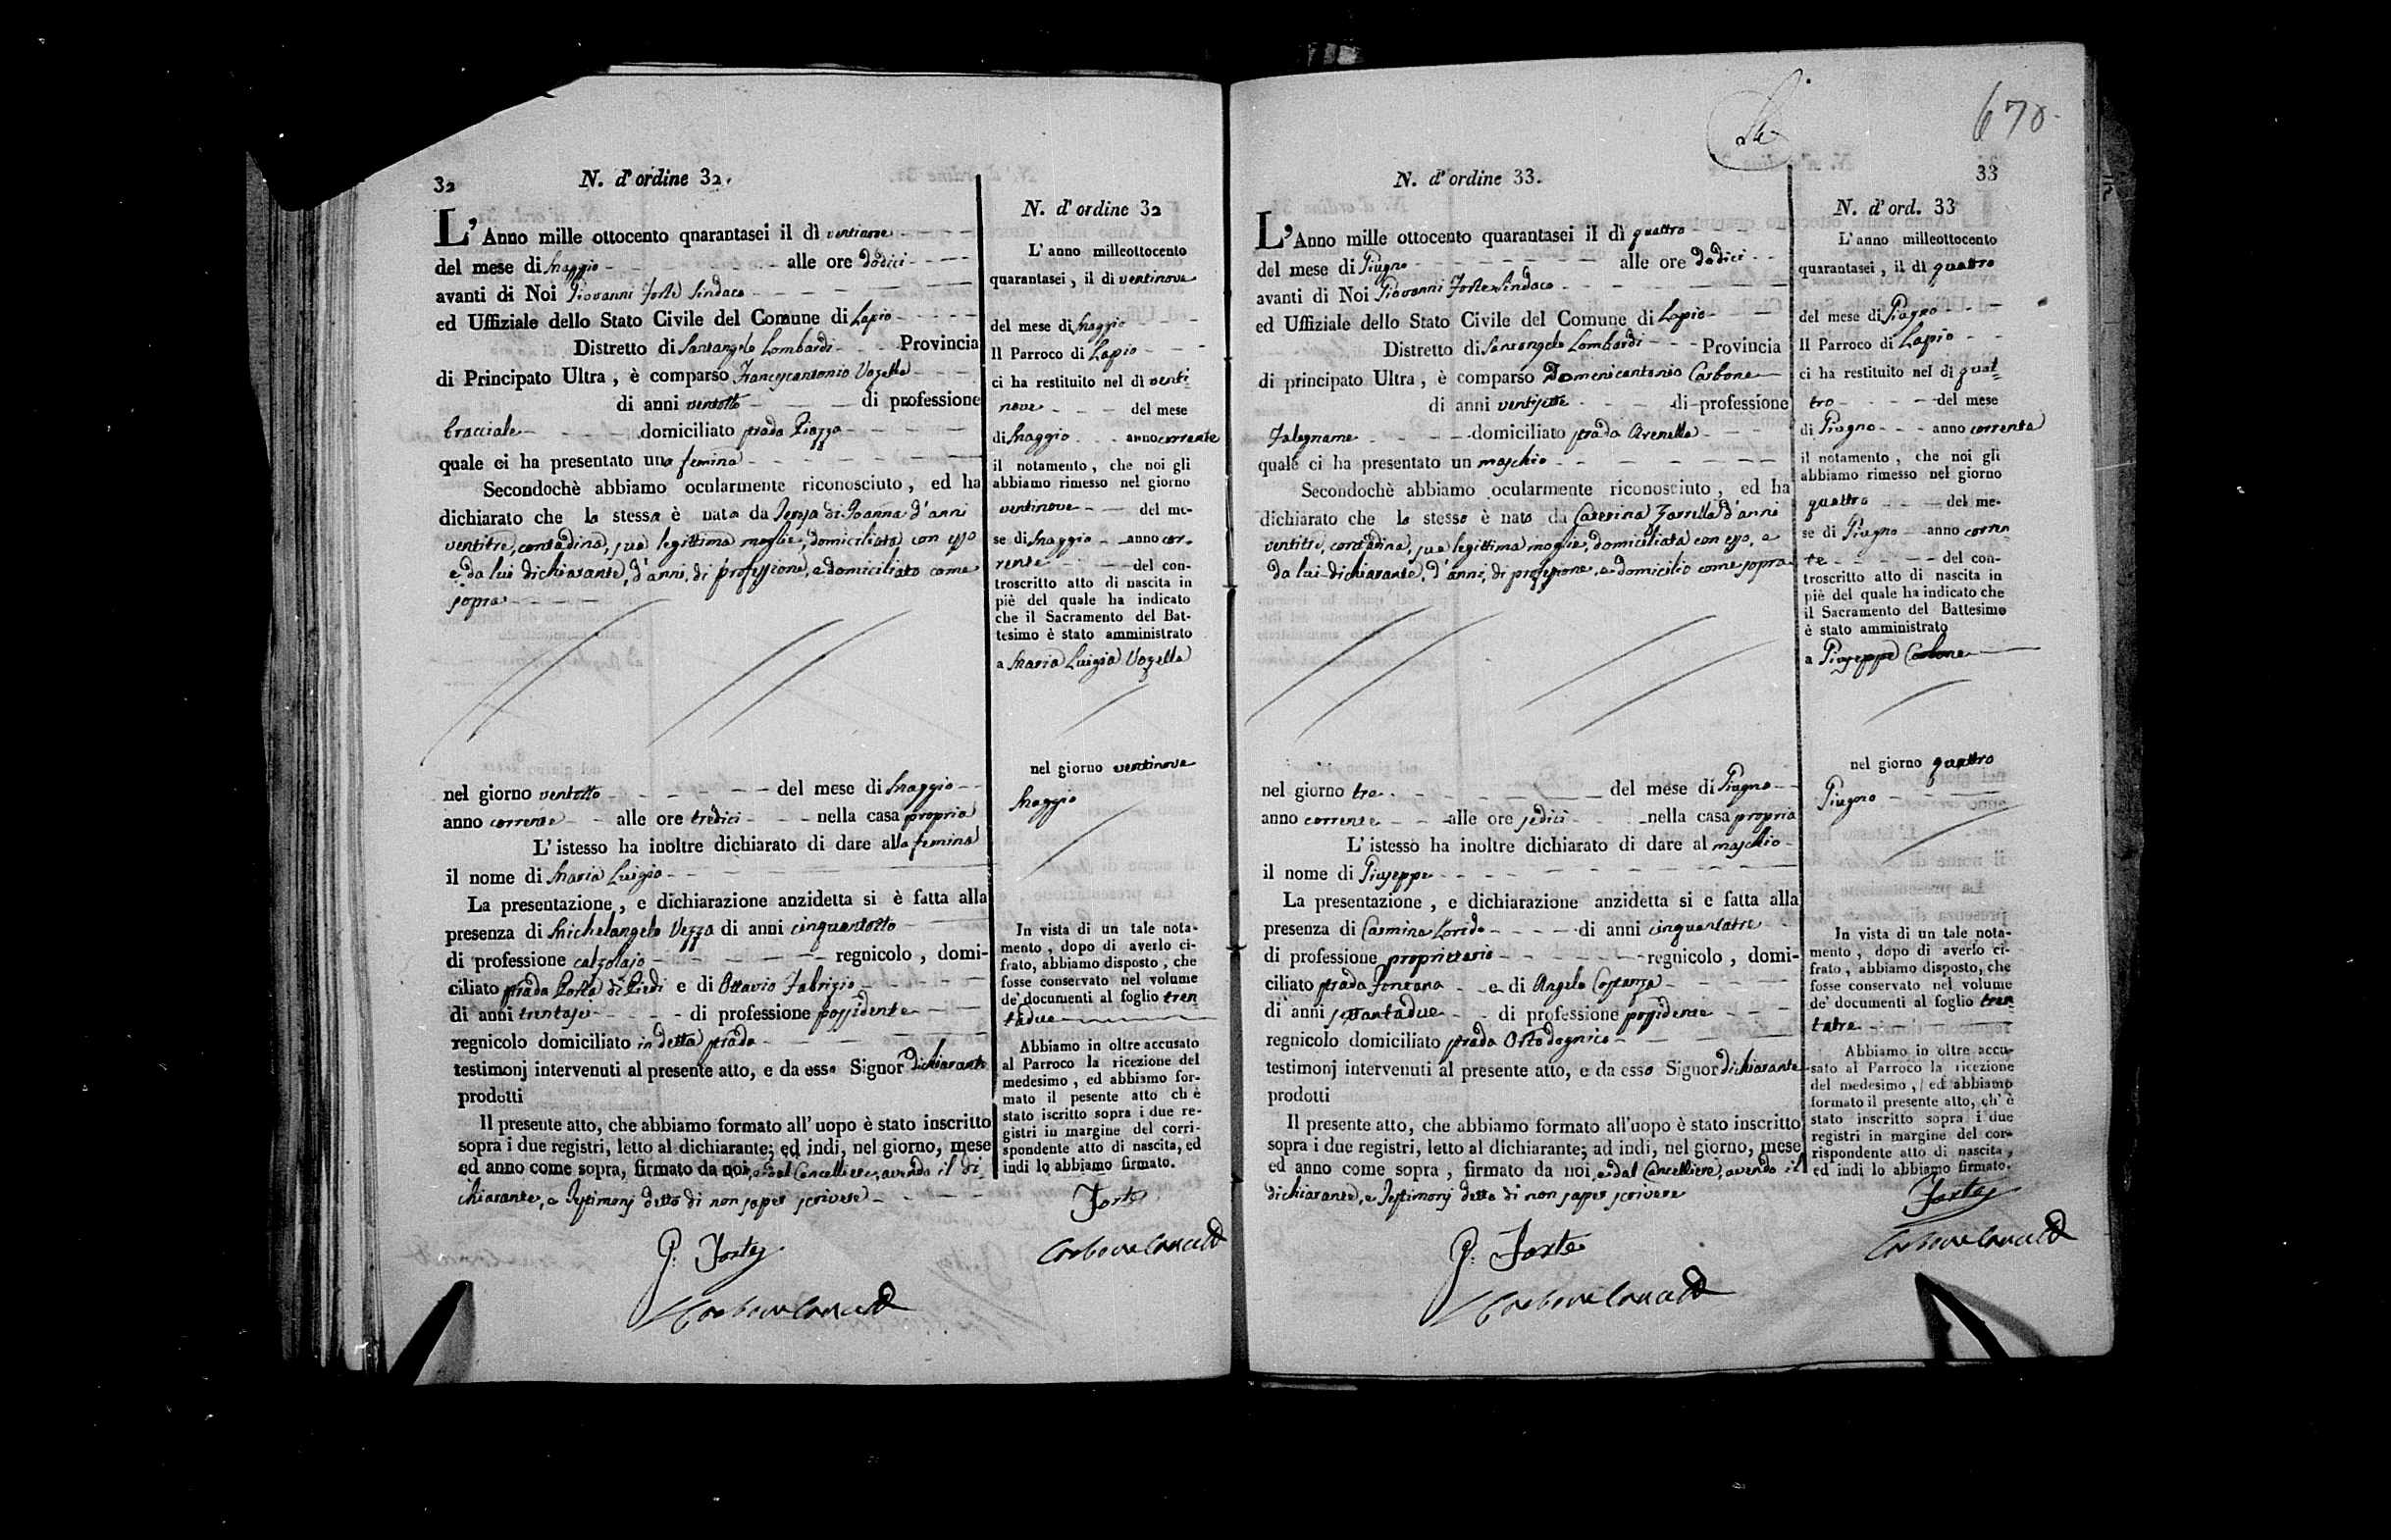 32
N. d'ordine 32.
L'Anno mille ottocento qnarantasei il dì ventinove
del mese di Maggio alle ore dodici
avanti di Noi Giovanni Forte Sindaco
ed Uffiziale dello Stato Civile del Comune di Lapio
Distretto di Santangelo Lombardi Provincia
di Principato Ultra, è comparso Francescantonio Vozella
di anni ventotto di professione
bracciale domiciliato strada Piazza
quale ci ha presentato una femina
Secondochè abbiamo ocularmente riconosciuto, ed ha
dichiarato che la stessa è nata da di Joanna d'anni
ventitre, contadina, sua legittima moglie, domiciliata con esso
e da lui dichiarante, d'anni, di professione, e domiciliato come
sopra
nel giorno ventotto del mese di Maggio
anno corrente alle ore tredici nella casa propria
L'istesso ha inoltre dichiarato di dare alla femina
il nome di Maria Luigia
La presentazione, e dichiarazione anzidetta si è fatta alla
presenza di Michelangelo Vezza di anni cinquantotto
di professione calzolajo regnicolo, domi-
ciliato strada Porta di Piedi e di Ottavio Fabrizio
di anni trentasei di professione possidente
regnicolo domiciliato in detta strada
testimonj intervenuti al presente atto, e da esso Signor dichiarante
prodotti
Il presente atto, che abbiamo formato all'uopo è stato inscritto
sopra i due registri, letto al dichiarante; ed indi, nel giorno, mese
ed anno come sopra, firmato da noi, e dal Cancelliere, avendo il di-
chiarante, e Testimonj detto di non saper scrivere
G. Forte
Carbone Canc
N. d'ordine 32
L'anno milleottocento
quarantasei, il dì ventinove
del mese di Maggio
Il Parroco di Lapio
ci ha restituito nel dì venti
nove del mese
di Maggio anno corrente
il notamento, che noi gli
abbiamo rimesso nel giorno
ventinove del me-
se di Maggio anno cor-
rente del con-
troscritto atto di nascita in
piè del quale ha indicato
che il Sacramento del Bat-
tesimo è stato amministrato
a Maria Luigia Vozella
nel giorno ventinove
Maggio
In vista di un tale nota-
mento, dopo di averlo ci-
frato, abbiamo disposto, che
fosse conservato nel volume
de' documenti al foglio tren
tadue
Abbiamo in oltre accusato
al Parroco la ricezione del
medesimo, ed abbiamo for-
mato il pesente atto ch è
stato iscritto sopra i due re-
gistri in margine del corri-
spondente atto di nascita, ed
indi lo abbiamo firmato.
Forte
Carbone Canc
670
33
N. d'ordine 33.
L'Anno mille ottocento quarantasei il dì quattro
del mese di Giugno alle ore dodici
avanti di Noi Giovanni Forte Sindaco
ed Uffiziale dello Stato Civile del Comune di Lapio
Distretto di Santangelo Lombardi Provincia
di principato Ultra, è comparso Domenicantonio Carbone
di anni ventisette di professione
Falegname domiciliato strada Arenella
quale ci ha presentato un maschio
Secondochè abbiamo ocularmente riconosciuto, ed ha
dichiarato che lo stesso è nato da Caterina Zarrella d'anni
ventitre, contadina, sua legittima moglie, domiciliata con esso, e
da lui dichiarante, d'anni, di professione, e domicilio come sopra
nel giorno tre del mese di Giugno
anno corrente alle ore sedici nella casa propria
L'istesso ha inoltre dichiarato di dare al maschio
il nome di Giuseppe
La presentazione, e dichiarazione anzidetta si e fatta alla
presenza di di anni cinquantatre
di professione proprietario regnicolo, domi-
ciliato strada Fontana e di Angelo Costanza
di anni settantadue di professione possidente
regnicolo domiciliato strada
testimonj intervenuti al presente atto, e da esso Signor dichiarante
prodotti
Il presente atto, che abbiamo formato all'uopo è stato inscritto
sopra i due registri, letto al dichiarante; ad indi, nel giorno, mese
ed anno come sopra, firmato da noi, e dal Cancelliere, avendo il
dichiarante, e Testimonj detto di non saper scrivere
G. Forte
Carbone Canc
N. d'ord. 33
L'anno milleottocento
quarantasei, il dì quattro
del mese di Giugno
Il Parroco di Lapio
ci ha restituito nel dì quat=
tro del mese
di Giugno anno corrente
il notamento, che noi gli
abbiamo rimesso nel giorno
quattro del me-
se di Giugno anno corren
te del con-
troscritto atto di nascita in
piè del quale ha indicato che
il Sacramento del Battesimo
è stato amministrato
a Giuseppe Carbone
nel giorno quattro
Giugno
In vista di un tale nota-
mento, dopo di averlo ci-
frato, abbiamo disposto, che
fosse conservato nel volume
de' documenti al foglio tren
tatre
Abbiamo in oltre accu-
sato al Parroco la ricezione
del medesimo, ed abbiamo
formato il presente atto, ch'è
stato inscritto sopra i due
registri in margine del cor-
rispondente atto di nascita,
ed indi lo abbiamo firmato.
Forte
Carbone Canc